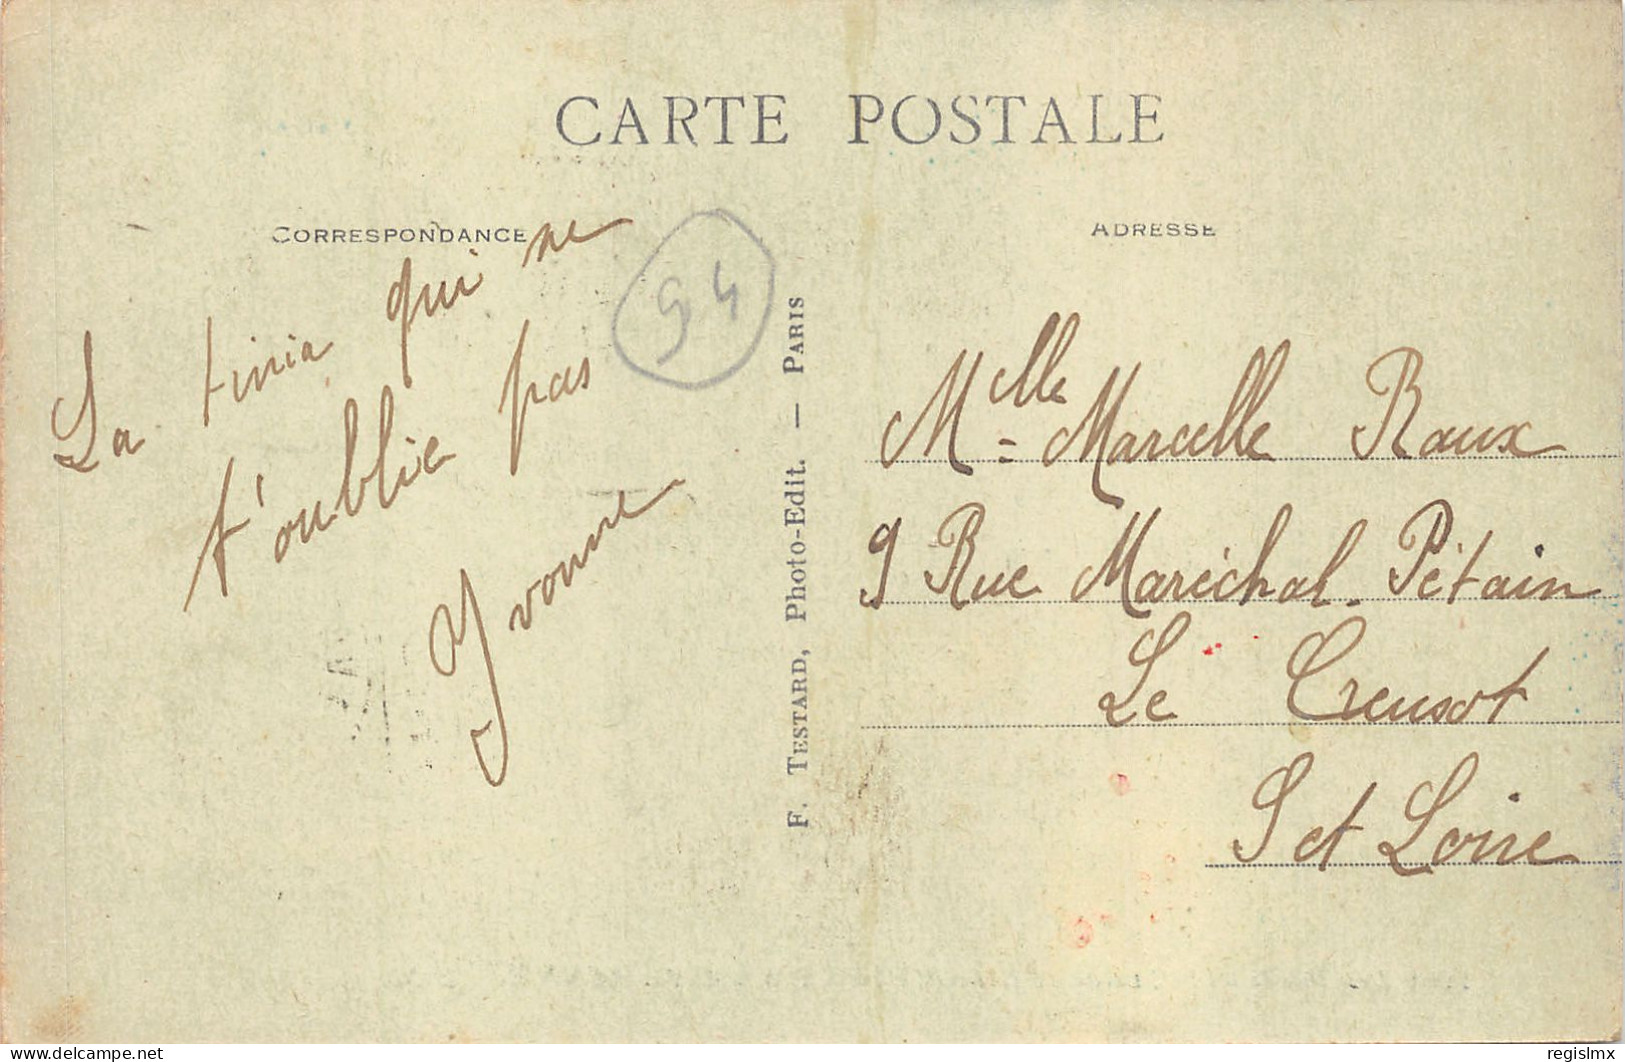 CARTE POSTALE
CORRESPONDANCE
La tinia qui ne
t'oublie pas
Yvonne
94
F. TESTARD, Photo-Edit. — PARIS
ADRESSE
Mlle = Marcelle Raux
9 Rue Maréchal-Pétain
Le Creusot
S et Loire
delcampe.net
regislmx